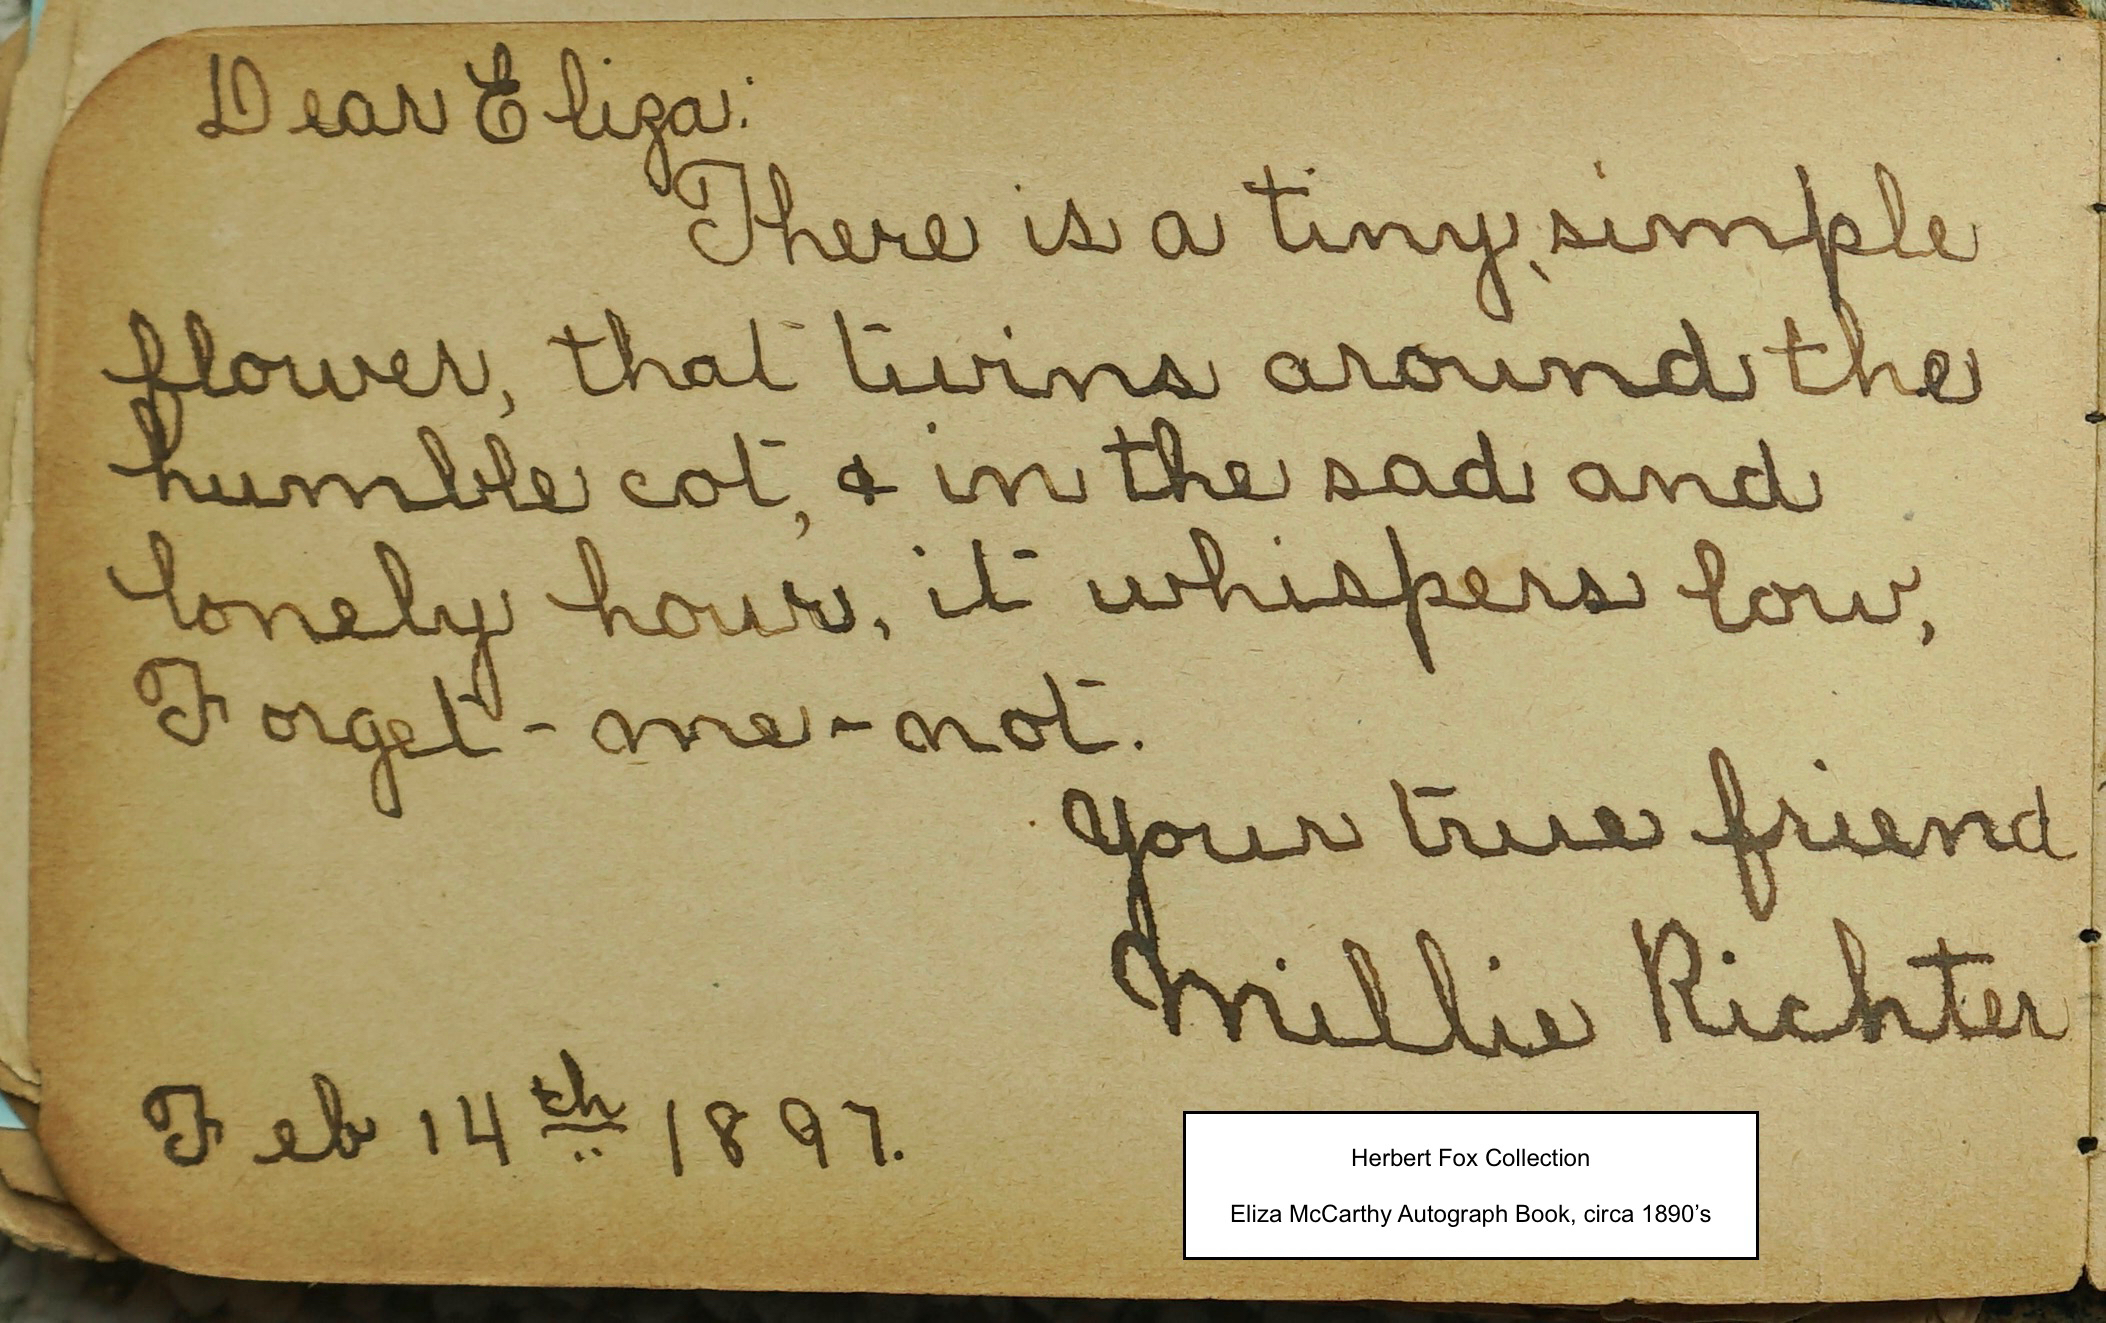 Dear Eliza:
There is a tiny, simple
flower, that twins around the
humble cot, & in the sad and
lonely hour, it whispers low,
Forget-me-not.
Your true friend
Millie Richter
Feb 14th 1897.
Herbert Fox Collection
Eliza McCarthy Autograph Book, circa 1890’s